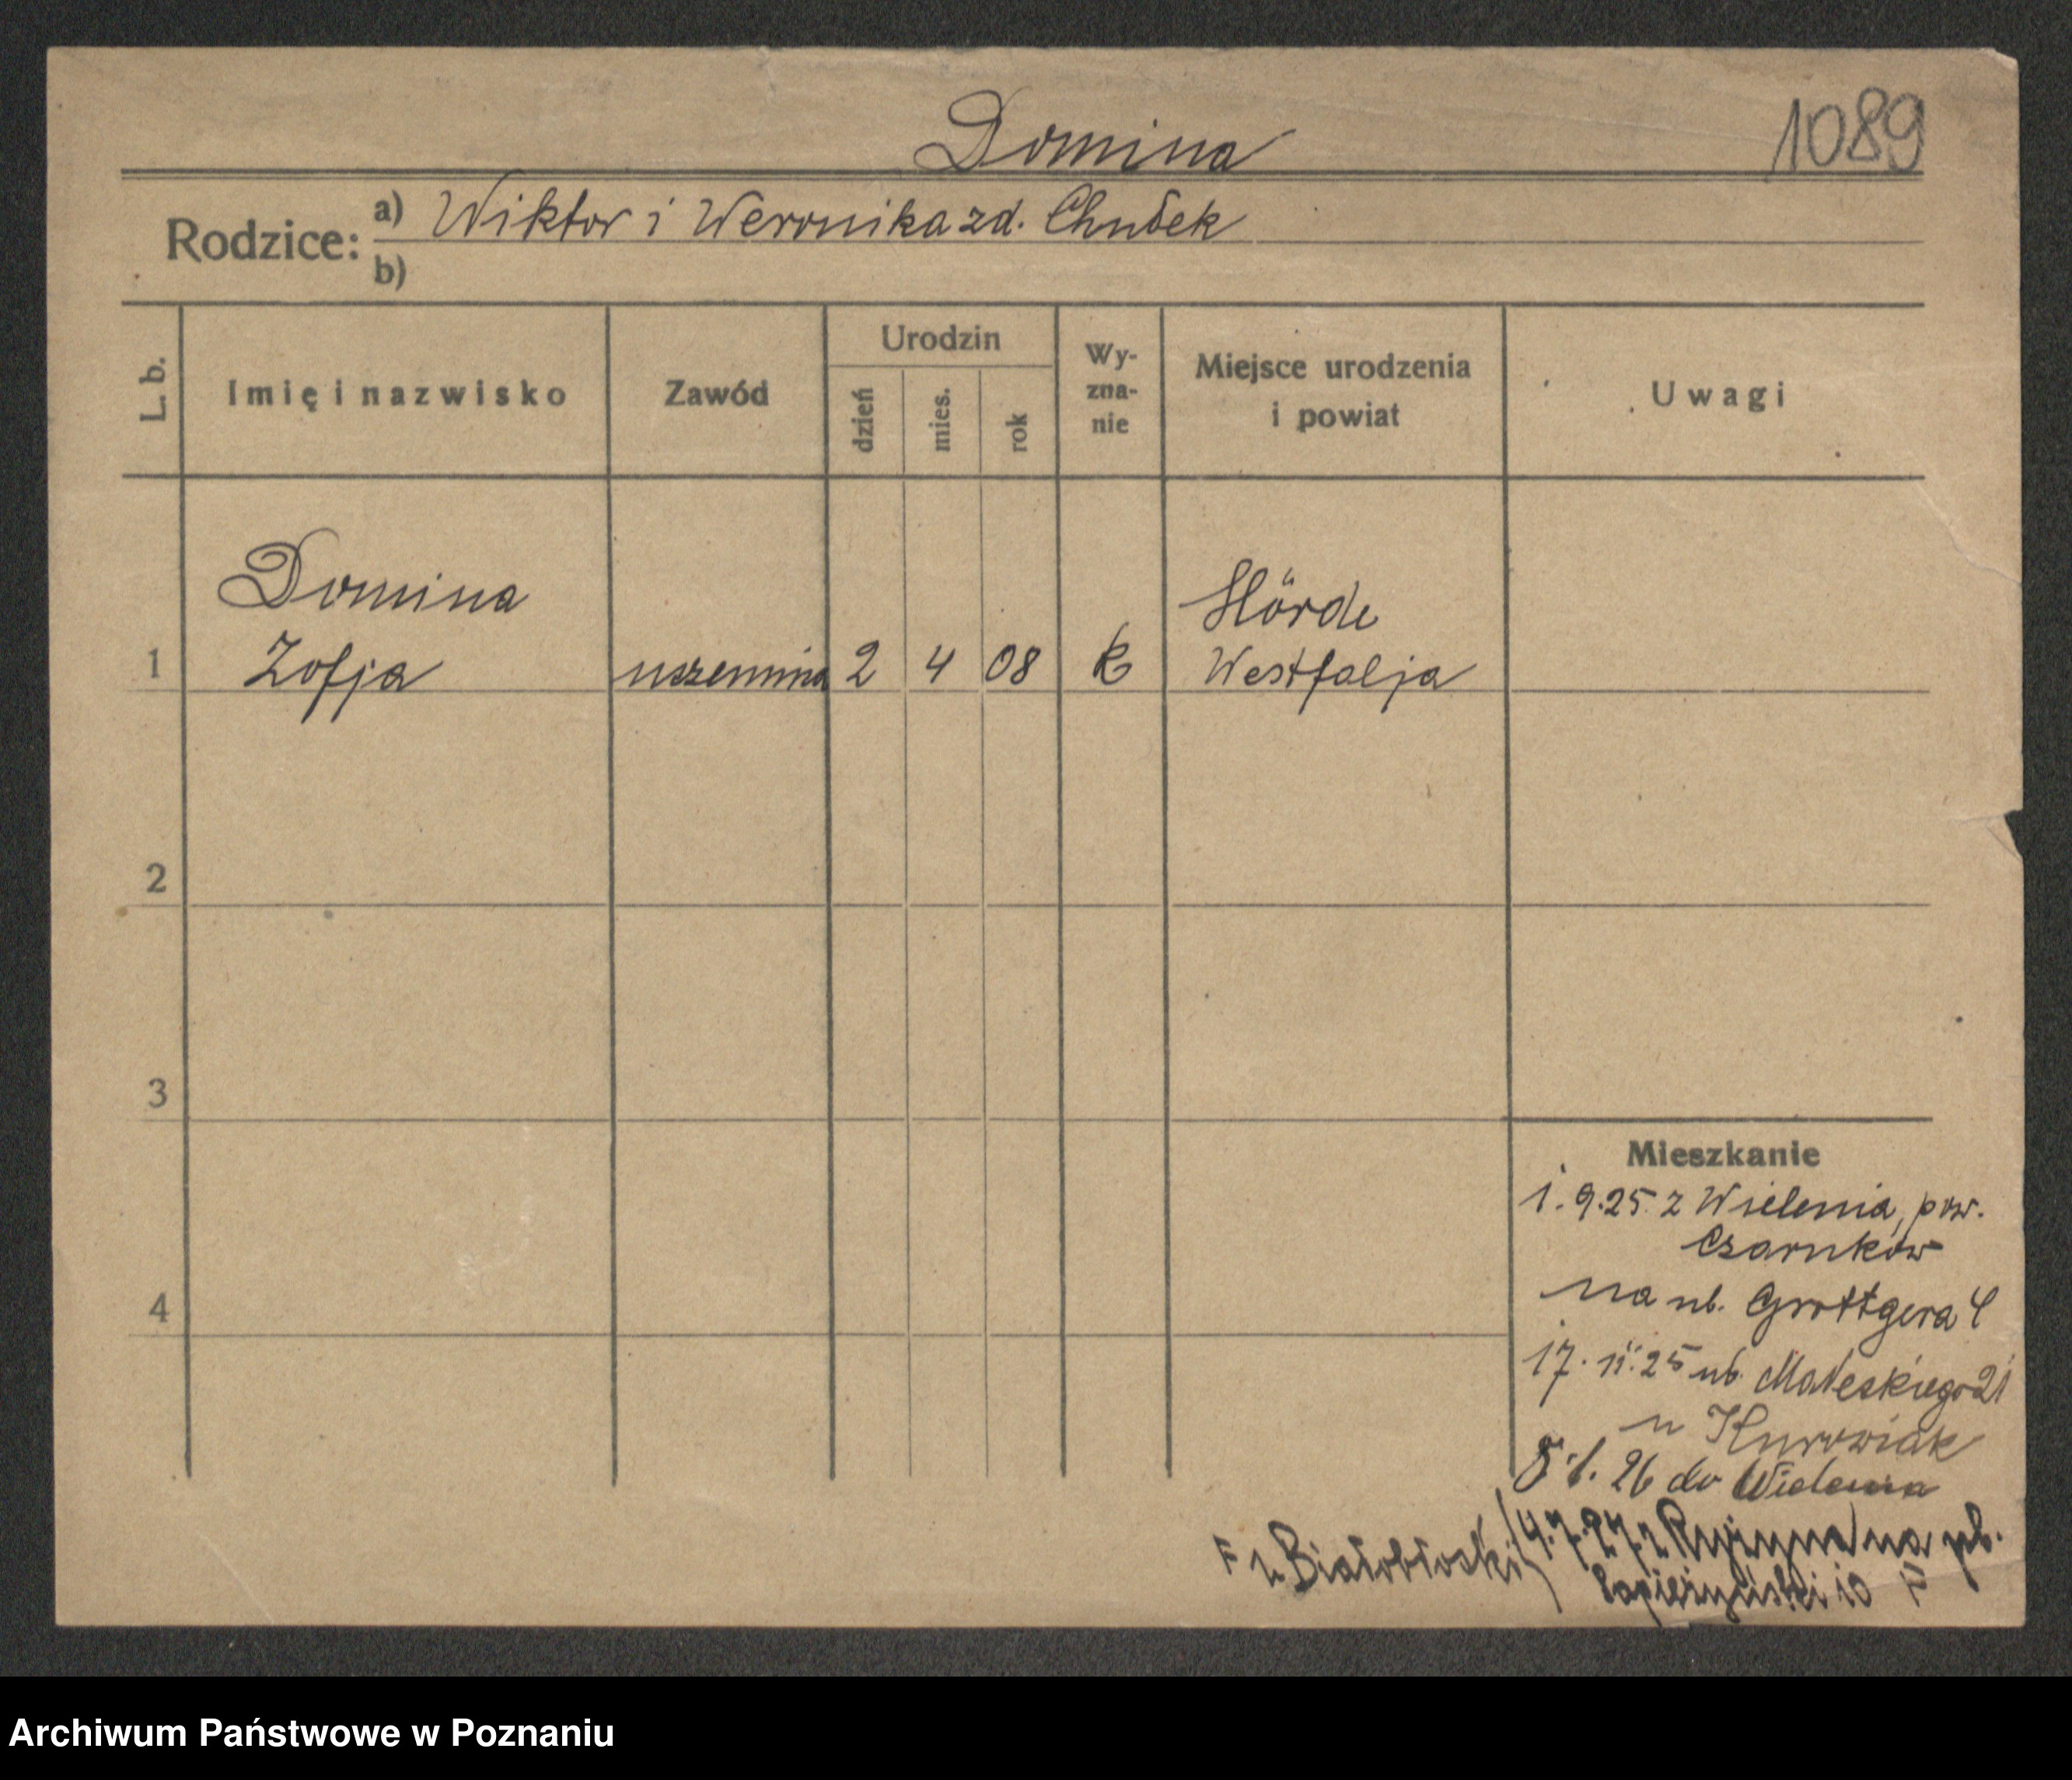 Domina
1089
Rodzice: a) Wiktor i Weronika zd. Chudek
b)
L. b. Imię i nazwisko Zawód Urodzin dzień mies. rok Wy-zna-nie Miejsce urodzenia i powiat Uwagi
Domina Hörde
1 Zofja uczennica 2 4 08 k Westfalja
2
3
4
Mieszkanie
1.9.25 z Wielenia, pow.
Czarnków
na ul. Grottgera 4
17.11.25 ul. 21
u
5.1.26 do Wielenia
4.7.27 z na pl.
Sapieżyński 10 F
F u
Archiwum Państwowe w Poznaniu